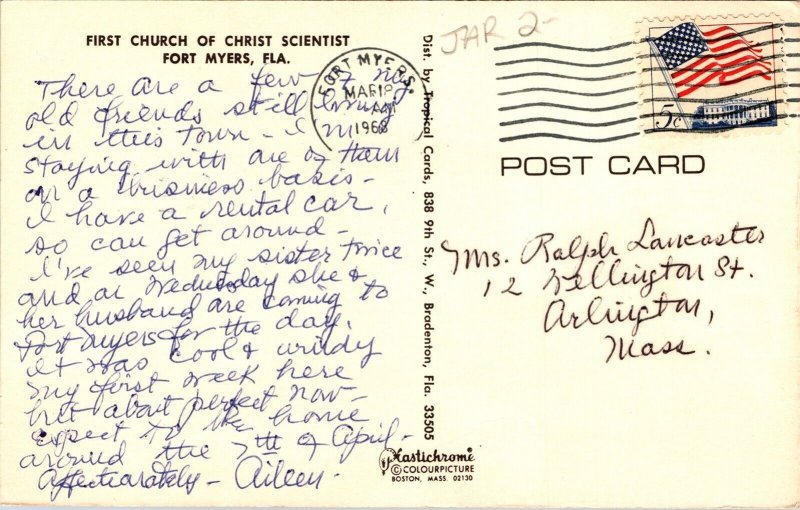 FIRST CHURCH OF CHRIST SCIENTIST
FORT MYERS, FLA.
There are a few of my
old friends still living
in this town - I'm
staying with one of them
on a business basis -
I have a rental car,
so can get around -
I've seen my sister twice
and on Wednesday she &
her husband are coming to
Fort Myers for the day.
It was cool & windy
my first week here
but about perfect now -
expect to be home
around the 7th of April -
Affectionately - Aileen -
Dist. by Tropical Cards, 838 9th St., W., Bradenton, Fla. 33505
Plastichrome
© COLOURPICTURE
BOSTON, MASS. 02130
JAR 2-
FORT MYERS
MAR 18
AM
1968
5c
POST CARD
Ms. Ralph Lancaster
12 Wellington St.
Arlington,
Mass.